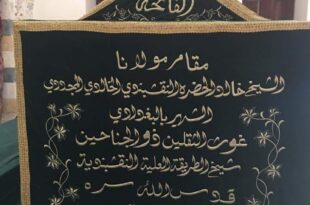 الفاتحة
مقام مولانا
الشيخ خالد الحضرة النقشبندي الخالدي المجددي
الشهير بالبغدادي
غوث الثقلين ذو الجناحين
شيخ الطريقة العلية النقشبندية
قدس الله سره